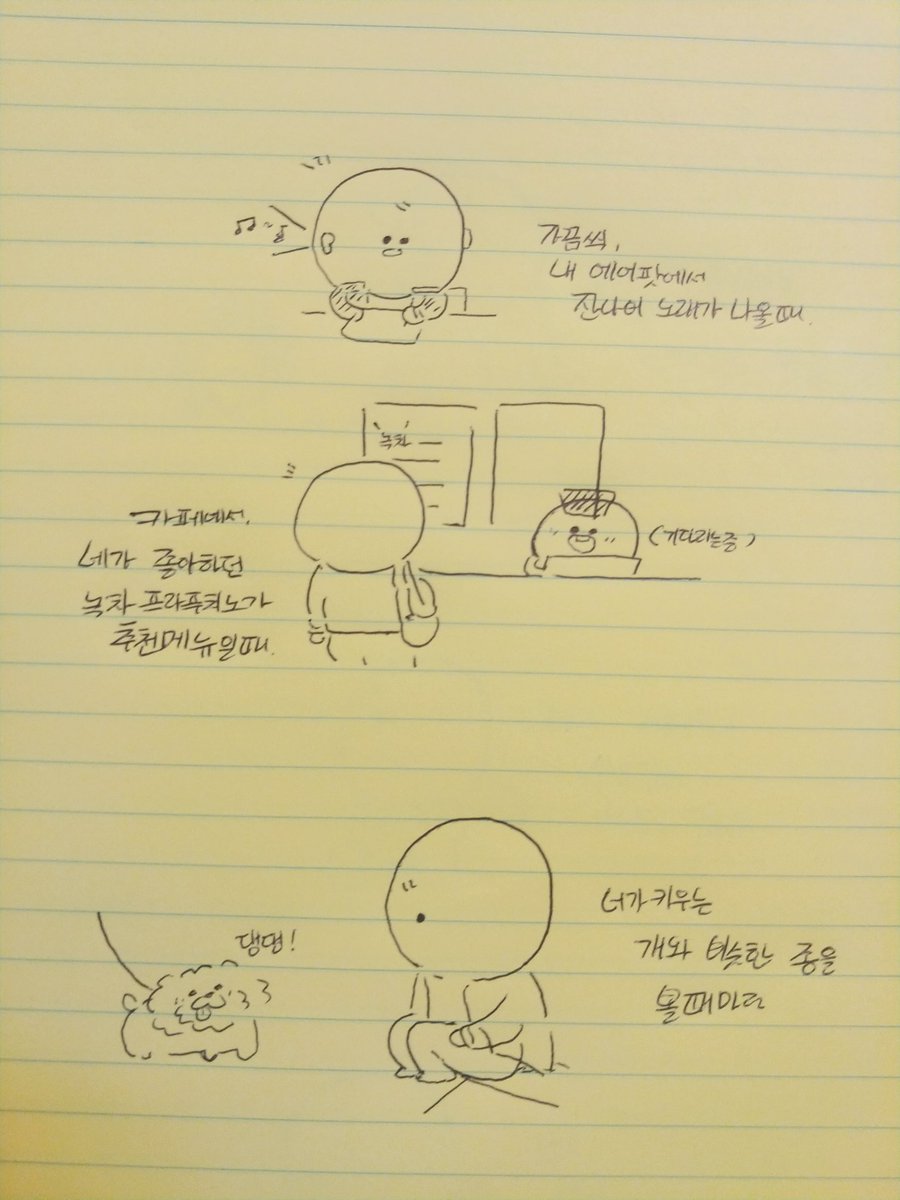 가끔씩,
내 에어팟에서
잔나비 노래가 나올때.
녹차
카페에서,
네가 좋아하던
녹차 프라푸치노가
추천메뉴일때.
(기다리는중)
댕댕!
너가 키우는
개와 비슷한 종을
볼때마다